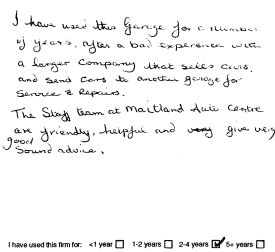 I have used this Garage for a number
of years, after a bad experience with
a larger Company that sells cars,
and send cars to another garage for
Service & Repairs.
The Staff team at Maitland Auto Centre
are friendly, helpful and very give very
good
Sound advice.
I have used this firm for: <1 year ☐ 1-2 years ☐ 2-4 years ☑ 5+ years ☐